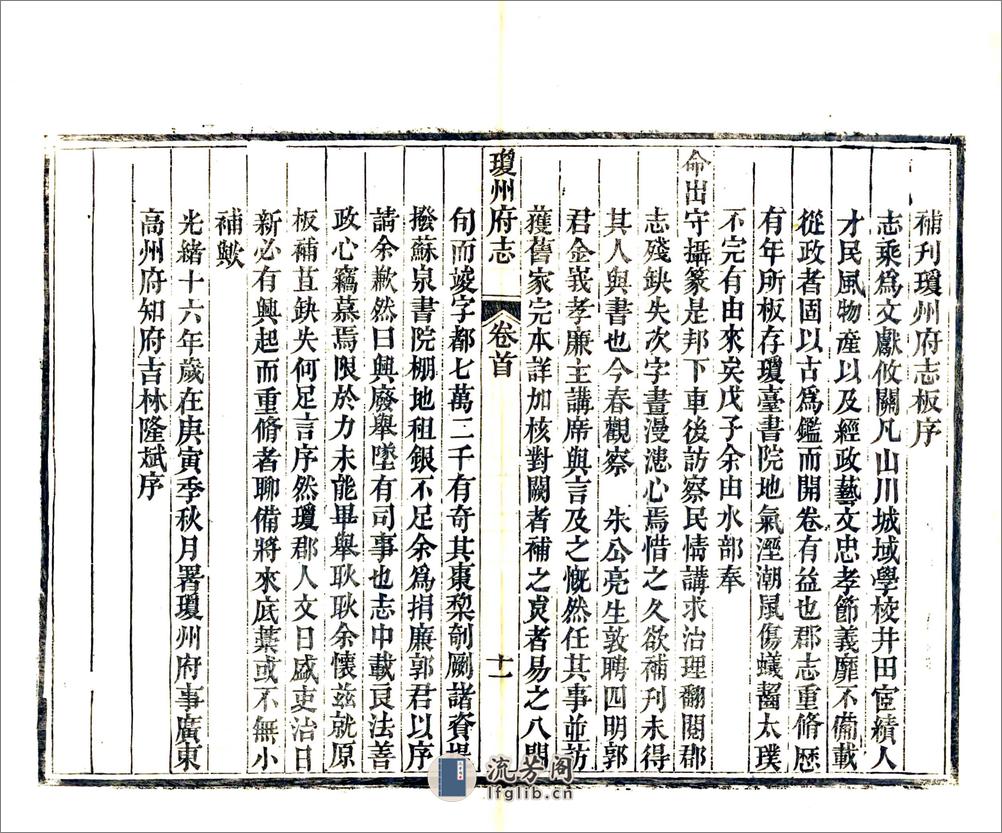 補刊瓊州府志板序
志乘爲文獻攸關凡山川城域學校井田宦績人
才民風物產以及經政藝文忠孝節義靡不備載
從政者固以古爲鑑而開卷有益也郡志重脩歷
有年所板存瓊臺書院地氣溼潮風傷蟻齧太璞
不完有由來矣戊子余由水部奉
命出守攝篆是邦下車後訪察民情講求治理翻閱郡
志殘缺失次字畫漫漶心焉惜之久欲補刊未得
其人與書也今春觀察 朱公亮生敦聘四明郭
君金峩孝廉主講席與言及之慨然任其事並訪
獲舊家完本詳加核對闕者補之宎者易之八閱
瓊州府志
卷首
十一
旬而竣字都七萬二千有奇其棗棃剞劂諸資
撥蘇泉書院棚地租銀不足余爲捐廉郭君以序
請余歉然曰興廢舉墜有司事也志中載良法善
政心竊慕焉限於力未能畢舉耿耿余懷茲就原
板補苴缺失何足言序然瓊郡人文日盛吏治日
新必有興起而重脩者聊備將來底葉或不無小
補歟
光緒十六年歲在庚寅季秋月署瓊州府事廣東
高州府知府吉林隆斌序
流芳閣
lfglib.cn